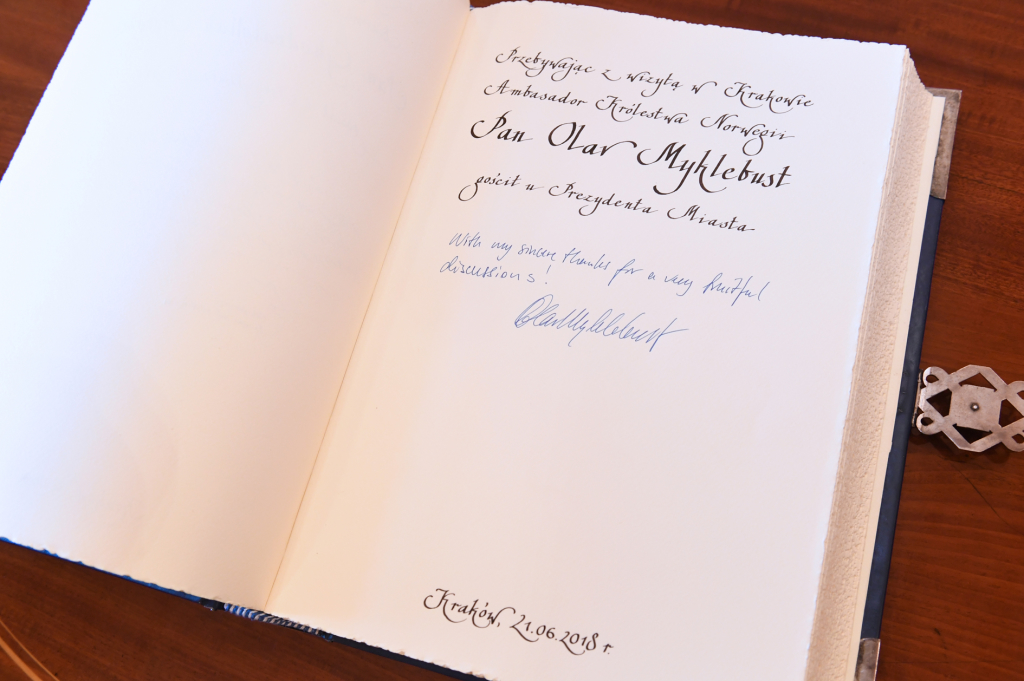 Przebywając z wizytą w Krakowie
Ambasador Królestwa Norwegii
Pan Olav Myklebust
gościł u Prezydenta Miasta
With my sincere thanks for a very fruitful
discussions!
Olav Myklebust
Kraków, 21.06.2018 r.